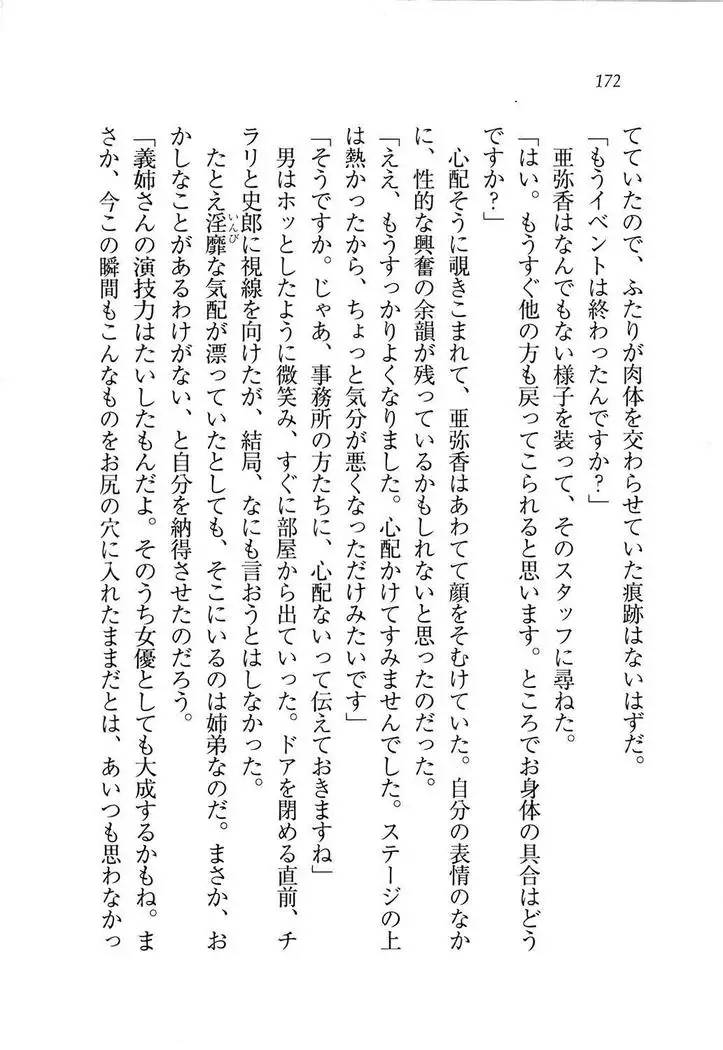 172
てていたので、ふたりが肉体を交わらせていた痕跡はないはずだ。
「もうイベントは終わったんですか?」
亜弥香はなんでもない様子を装って、そのスタッフに尋ねた。
「はい。もうすぐ他の方も戻ってこられると思います。ところでお身体の具合はどう
ですか?」
心配そうに覗きこまれて、亜弥香はあわてて顔をそむけていた。自分の表情のなか
に、性的な興奮の余韻が残っているかもしれないと思ったのだった。
「ええ、もうすっかりよくなりました。心配かけてすみませんでした。ステージの上
は熱かったから、ちょっと気分が悪くなっただけみたいです」
「そうですか。じゃあ、事務所の方たちに、心配ないって伝えておきますね」
男はホッとしたように微笑み、すぐに部屋から出ていった。ドアを閉める直前、チ
ラリと史郎に視線を向けたが、結局、なにも言おうとはしなかった。
たとえ淫靡な気配が漂っていたとしても、そこにいるのは姉弟なのだ。まさか、お
いんび
かしなことがあるわけがない、と自分を納得させたのだろう。
「義姉さんの演技力はたいしたもんだよ。そのうち女優としても大成するかもね。ま
さか、今この瞬間もこんなものをお尻の穴に入れたままだとは、あいつも思わなかっ